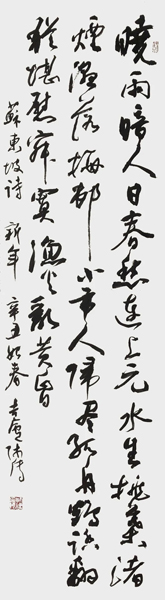 曉雨暗人日春愁連上元水生挑菜渚
煙溼落梅邨小市人歸盡孤舟鶴踏翻
猶堪慰寂寞漁火亂黃昏
蘇東坡詩 新年 辛丑初春